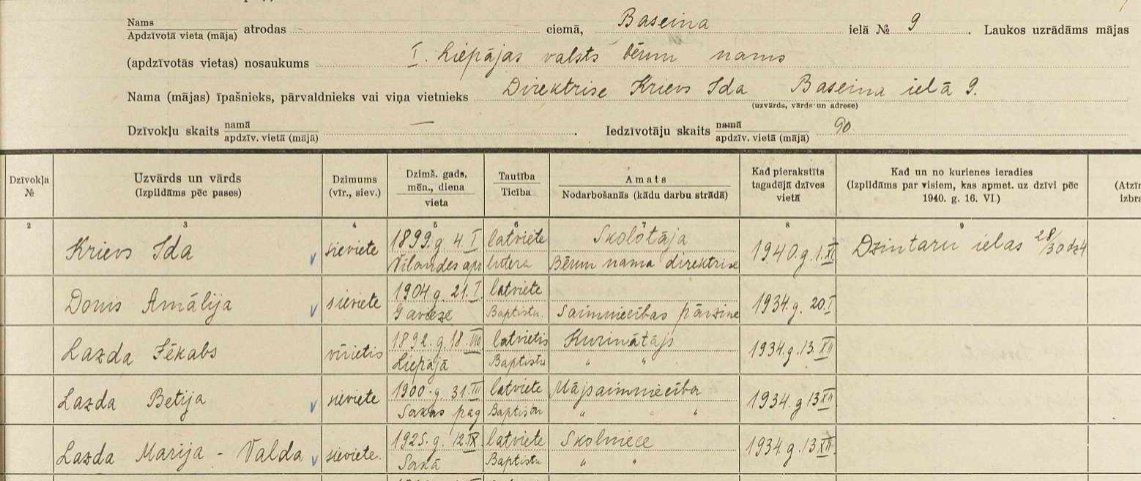 Nams
Apdzīvotā vieta (māja) atrodas ciemā, Baseina ielā № 9. Laukos uzrādāms mājas
(apdzīvotās vietas) nosaukums I. Liepājas valsts bērnu nams
Nama (mājas) īpašnieks, pārvaldnieks vai viņa vietnieks Direktrise Krievs Ida Baseina ielā 9.
(uzvārds, vārds un adrese)
Dzīvokļu skaits namā — Iedzīvotāju skaits namā 90
apdzīv. vietā (mājā) apdzīv. vietā (mājā)
Dzīvokļa № Uzvārds un vārds (Izpildāms pēc pases) Dzimums (vīr., siev.) Dzimš. gads, mēn., diena vieta Tautība Ticība Amats Nodarbošanās (kādu darbu strādā) Kad pierakstīts tagadējā dzīves vietā Kad un no kurienes ieradies (Izpildāms par visiem, kas apmet. uz dzīvi pēc 1940. g. 16. VI.) (Atzī
izbra
2 3 4 5 6 7 8 9
Krievs Ida sieviete 1899.g 4 I latviete Skolotāja 1940.g. 1.XI Dzintaru ielas 28/30 dz4
Vilandes apr lutera Bērnu nama direktrise
Donis Amālija sieviete 1904.g. 21.I. latviete 1934.g. 20 I
Gavieze Baptistu Saimniecības pārzine
Lazda Jēkabs vīrietis 1892.g. 18 VIII latvietis Kurinātājs 1934.g. 13 XII
Liepājā Baptistu " "
Lazda Betija sieviete 1900.g. 31. latviete Mājsaimniecība 1934 g 13 XII
Sakas pag Baptistu " " "
Lazda Marija - Valda sieviete. 1925.g. 12.IX. latviete Skolniece 1934.g. 13 XII
Sakā Baptistu " "